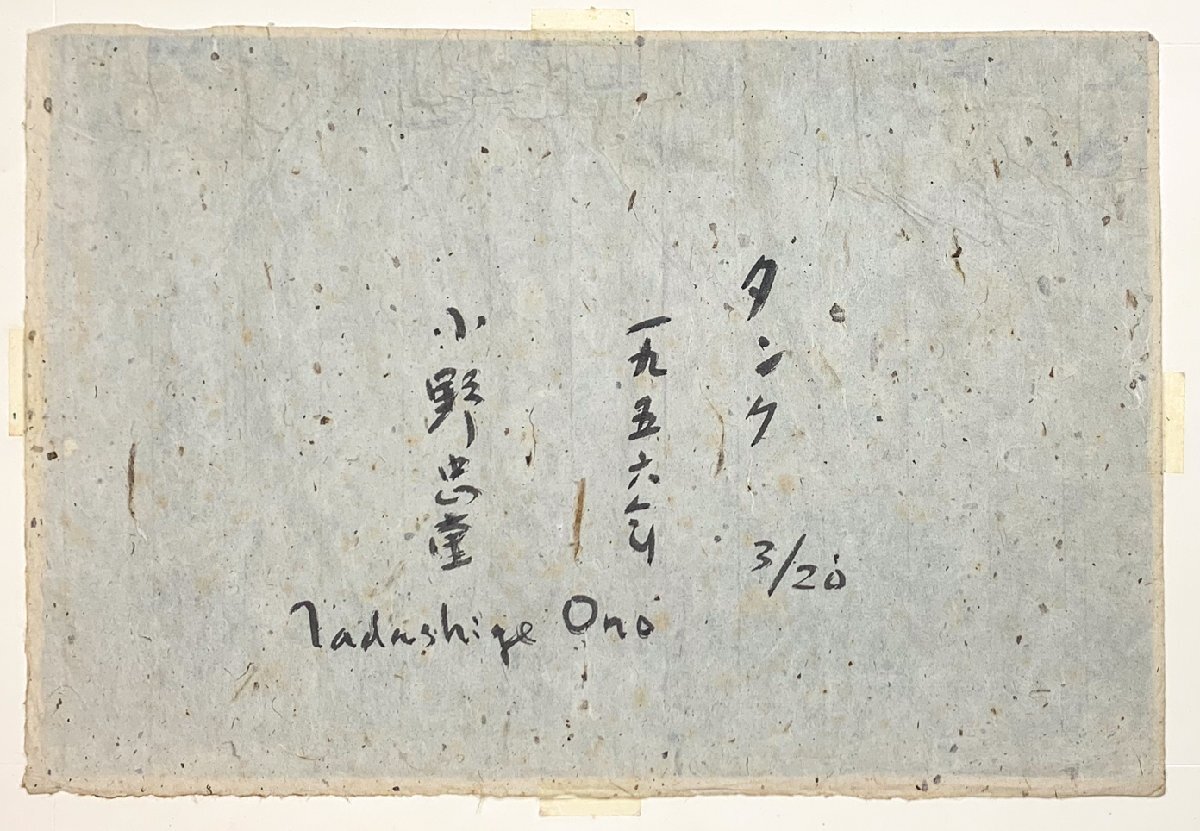 タンク
3/20
一九五六年
小野忠重
Tadashige Ono